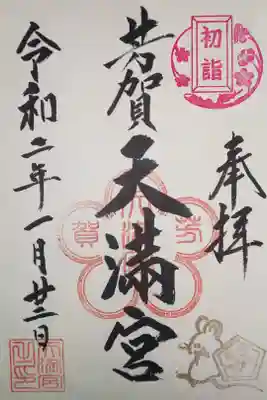 初詣
奉拝
芳賀天満宮
芳
賀
令和二年一月廿二日